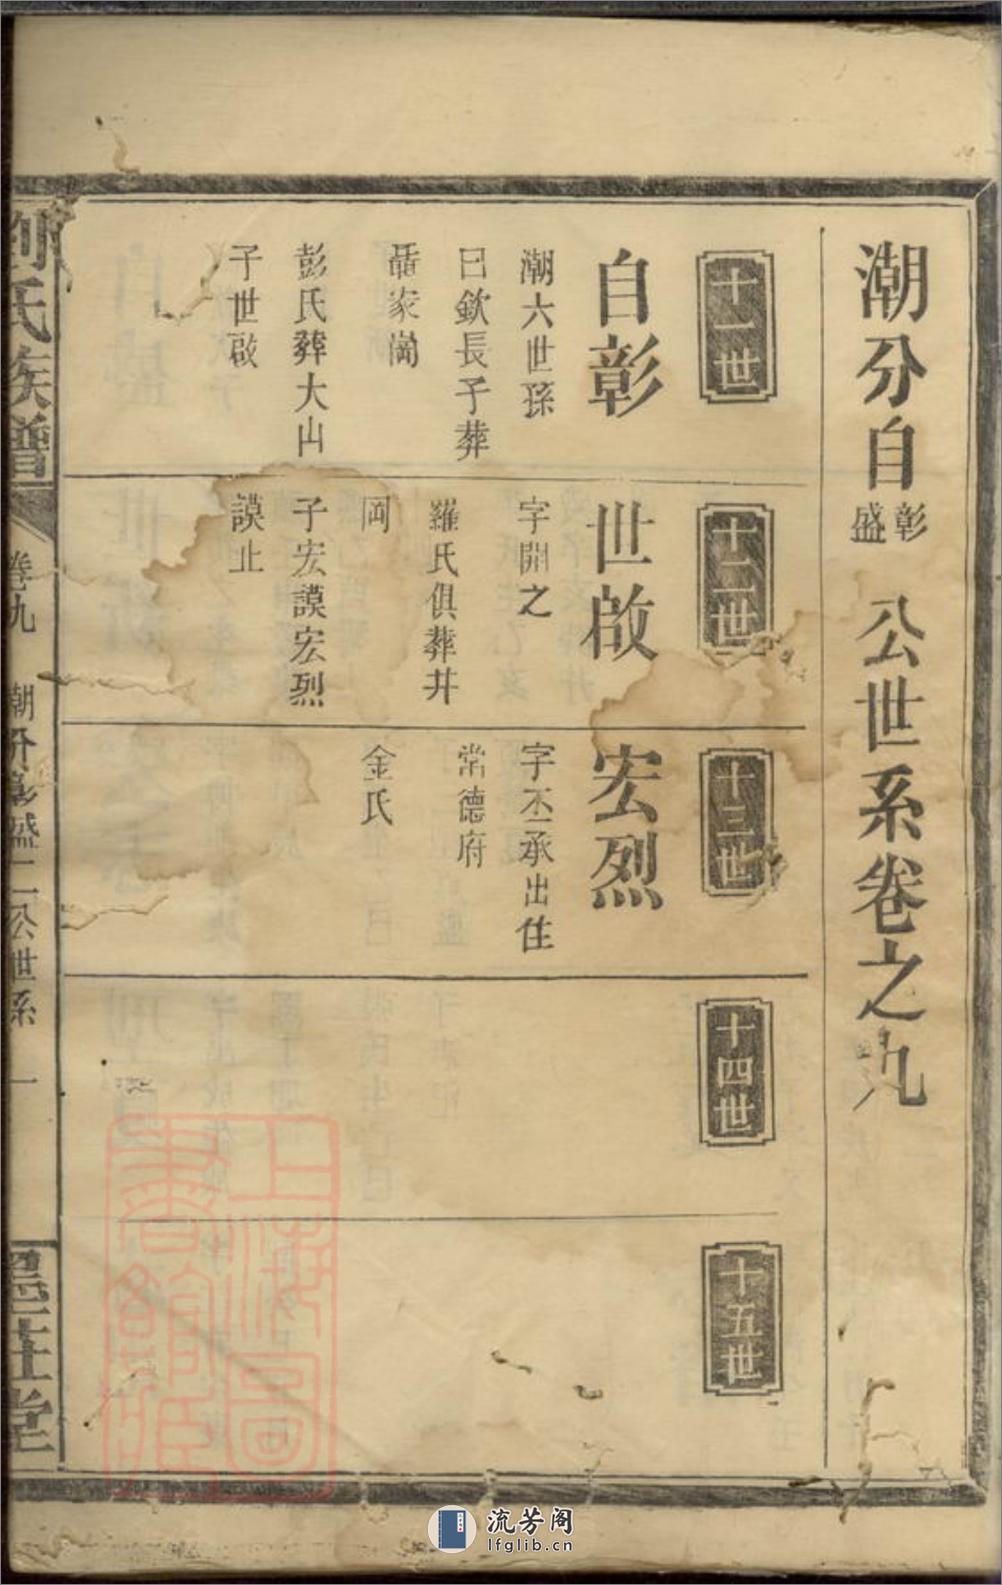 潮分自彰盛公世系卷之九
十一世
自彰
潮六世孫
曰欽長子葬
聶家崗
彭氏葬大山
子世啟
十二世
世啟
字開之
羅氏俱葬井
岡
子宏謨宏烈
謨止
十三世
宏烈
字丕承出住
常德府
金氏
十四世
十五世
劉氏族譜
卷九
潮分彰盛二公世系
一
上海圖書館藏
流芳阁
lfglib.cn